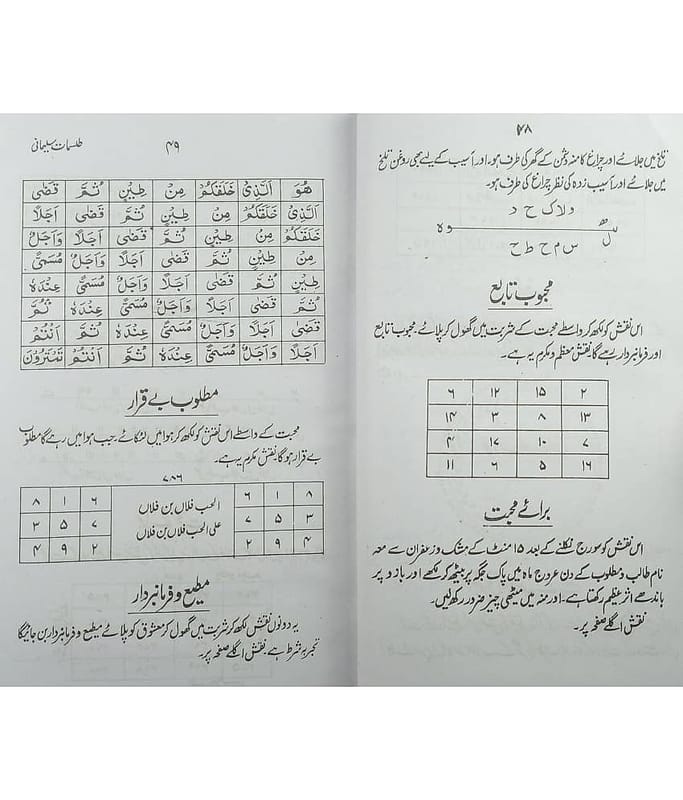 ۴۸
تلخ میں جلائے اور چراغ کا منہ دشمن کے گھر کی طرف ہو۔ اور آسیب کے لیے بھی روغن تلخ
میں جلائے اور آسیب زدہ کی نظر چراغ کی طرف ہو۔
و لا ک ح د
وہ
س م ح ط ح
محبوب تابع
اس نقش کو لکھ کر واسطے محبت کے شربت میں گھول کر پلائے۔ محبوب تابع
اور فرمانبردار رہے گا، نقش معظم و مکرم یہ ہے۔
۶ ۱۲ ۱۵ ۲
۱۴ ۳ ۸ ۱۳
۴ ۱۷ ۱۰ ۷
۱۱ ۶ ۵ ۱۶
برائے محبت
اس نقش کو سورج نکلنے کے بعد ۱۵ منٹ کے مشک و زعفران سے معہ
نام طالب و مطلوب کے دن عروج ماہ میں پاک جگہ پر بیٹھ کر لکھے اور بازو پر
باندھے اثر عظیم رکھتا ہے۔ اور منہ میں میٹھی چیز ضرور رکھ لیں۔
نقش اگلے صفحہ پر۔
۴۹
طلسمات سلیمانی
هُوَ الَّذِیْ خَلَقَکُمْ مِنْ طِیْنٍ ثُمَّ قَضٰی
الَّذِیْ خَلَقَکُمْ مِنْ طِیْنٍ ثُمَّ قَضٰی اَجَلًا
خَلَقَکُمْ مِنْ طِیْنٍ ثُمَّ قَضٰی اَجَلًا وَاَجَلٌ
مِنْ طِیْنٍ ثُمَّ قَضٰی اَجَلًا وَاَجَلٌ مُسَمًّی
طِیْنٍ ثُمَّ قَضٰی اَجَلًا وَاَجَلٌ مُسَمًّی عِنْدَهٗ
ثُمَّ قَضٰی اَجَلًا وَاَجَلٌ مُسَمًّی عِنْدَهٗ ثُمَّ
قَضٰی اَجَلًا وَاَجَلٌ مُسَمًّی عِنْدَهٗ ثُمَّ اَنْتُمْ
اَجَلًا وَاَجَلٌ مُسَمًّی عِنْدَهٗ ثُمَّ اَنْتُمْ تَمْتَرُوْنَ
مطلوب بے قرار
محبت کے واسطے اس نقش کو لکھ کر ہوا میں لٹکائے جب ہوا میں رہے گا مطلوب
بے قرار ہوگا۔ نقش مکرم یہ ہے۔
۷۸۶
۸ ۱ ۶ الحب فلاں بن فلاں ۶ ۱ ۸
۳ ۵ ۷ علی الحب فلاں بن فلاں ۷ ۵ ۳
۴ ۹ ۲ ۲ ۹ ۴
مطیع و فرمانبردار
یہ دونوں نقش لکھ کر شربت میں گھول کر معشوق کو پلائے مطیع و فرمانبردار بن جائیگا
تجربہ شرط ہے۔ نقش اگلے صفحہ پر۔